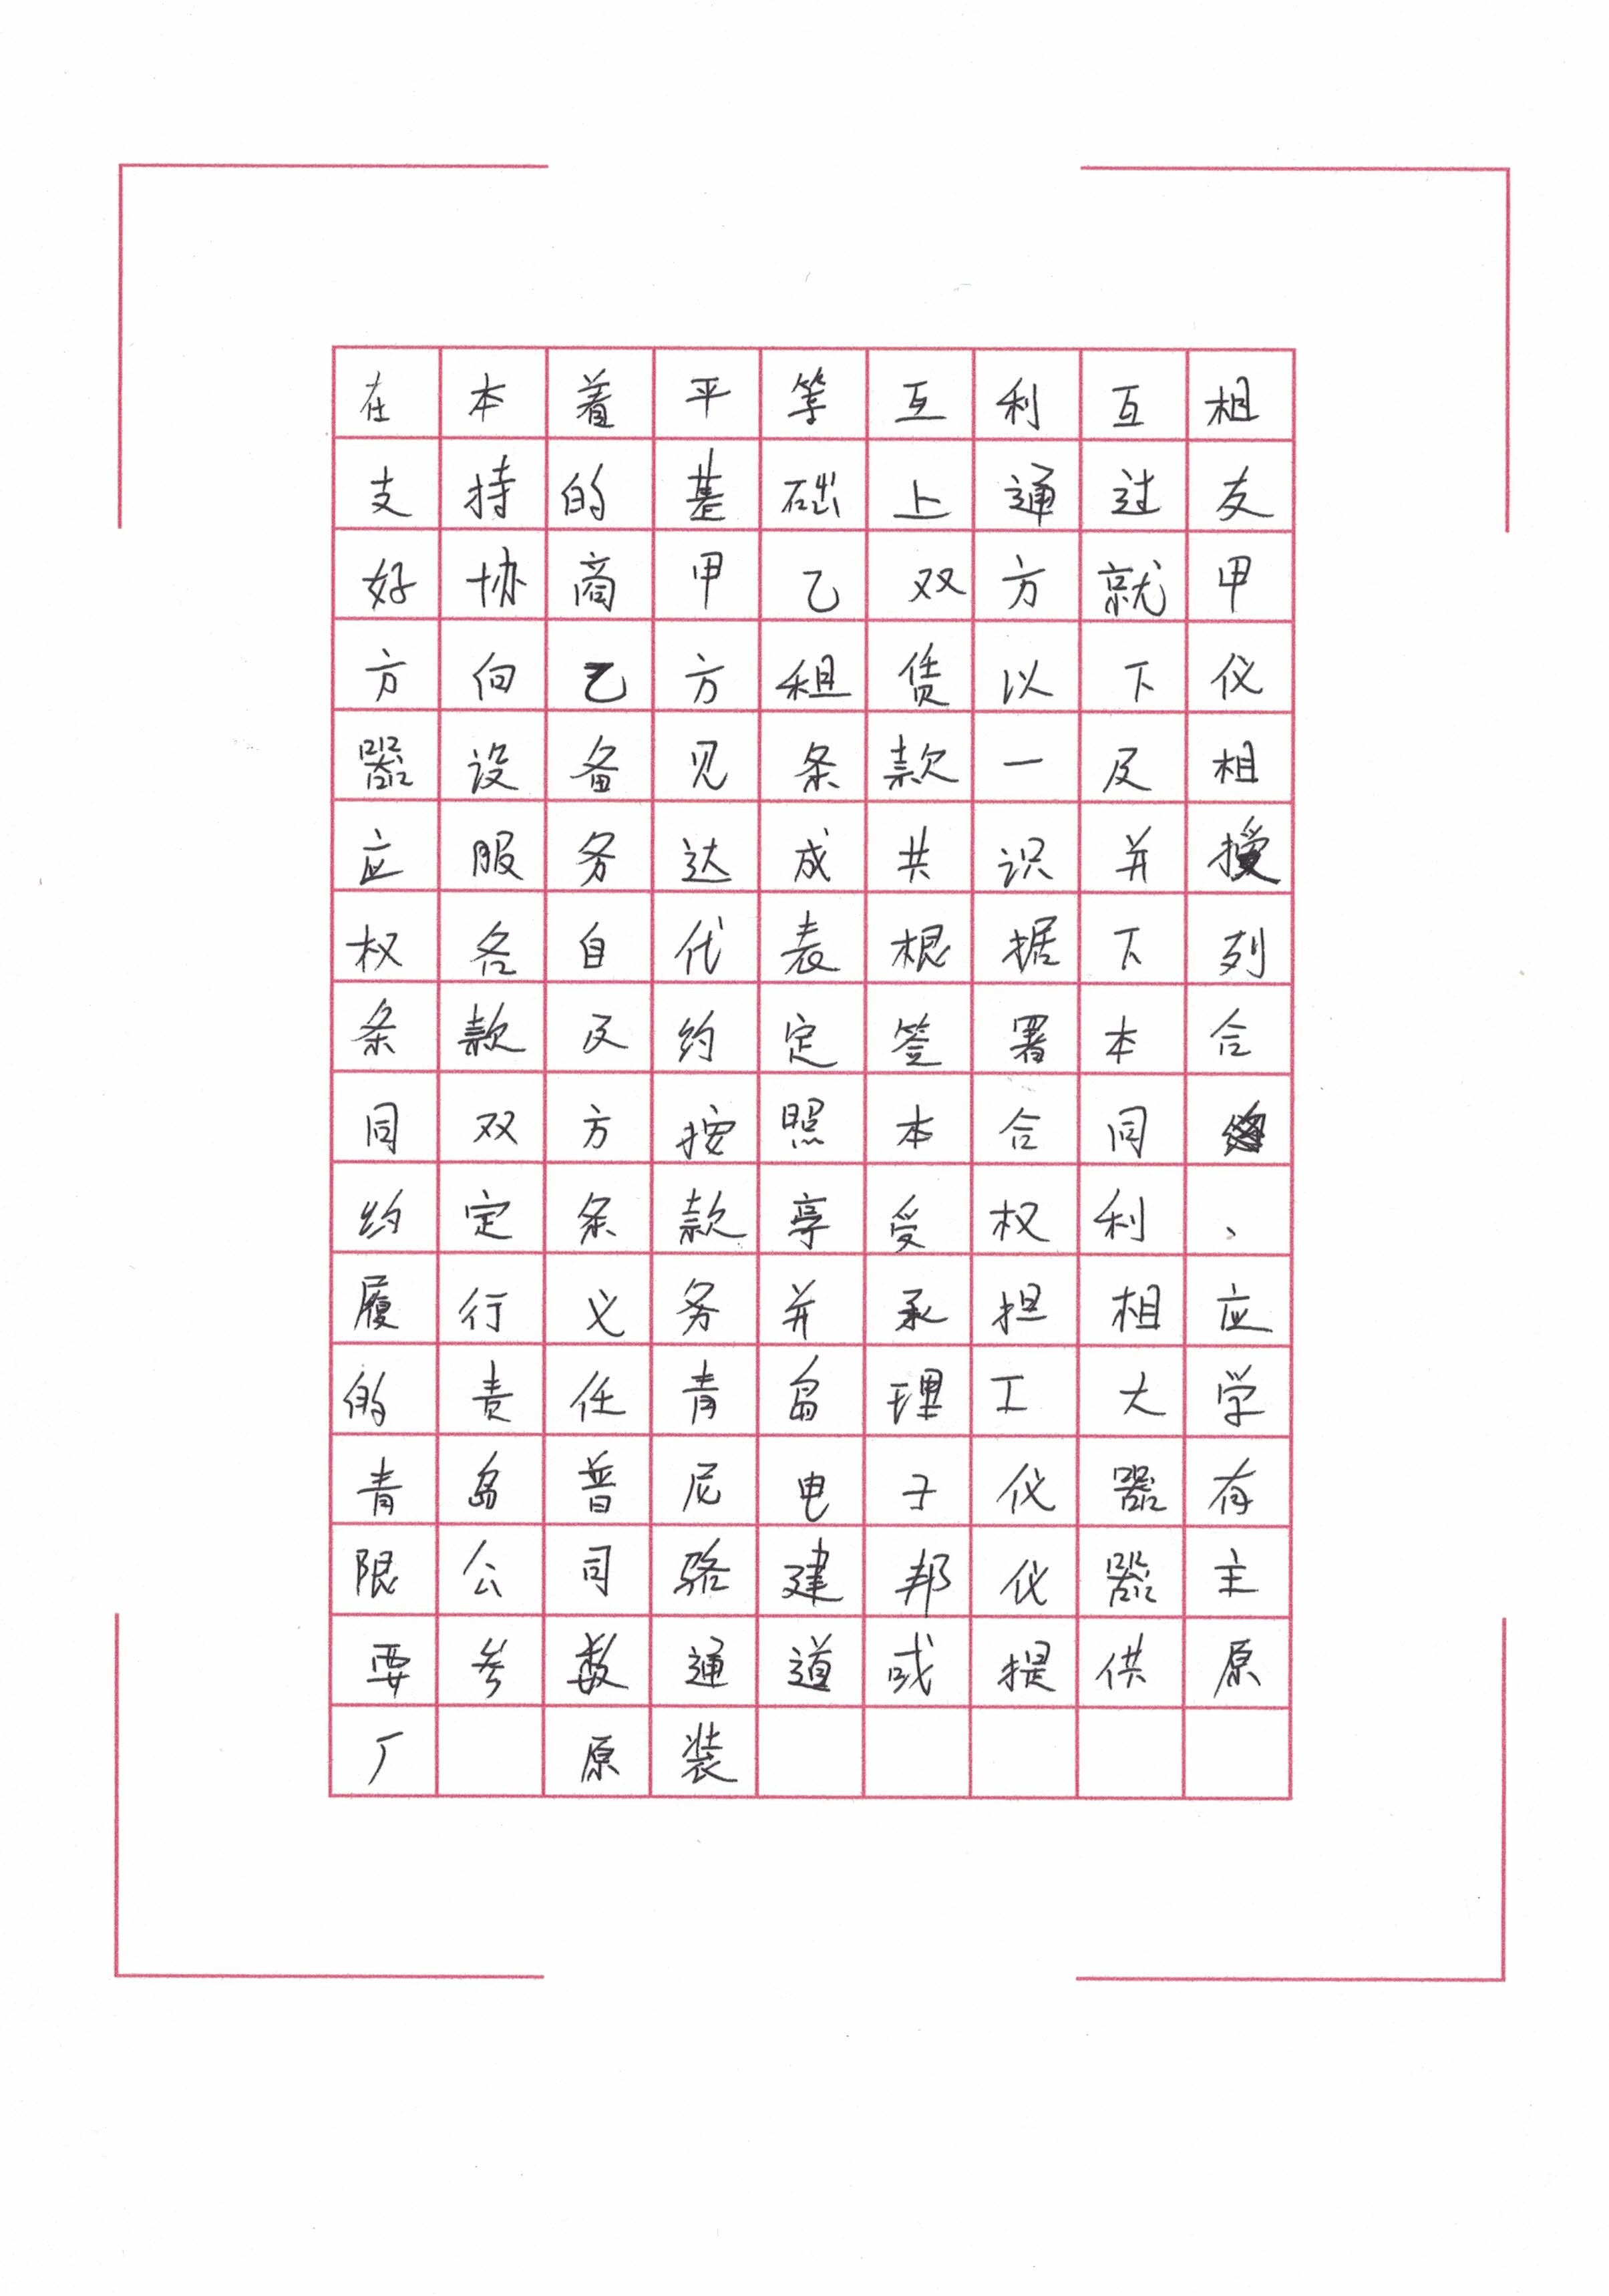 在本着平等互利互相
支持的基础上通过友
好协商甲乙双方就甲
方向乙方租赁以下仪
器设备见条款一及相
应服务达成共识并授
权各自代表根据下列
条款及约定签署本合
同双方按照本合同
约定条款享受权利、
履行义务并承担相应
的责任青岛理工大学
青岛普尼电子仪器有
限公司骆建邦仪器主
要参数通道或提供原
厂 原装